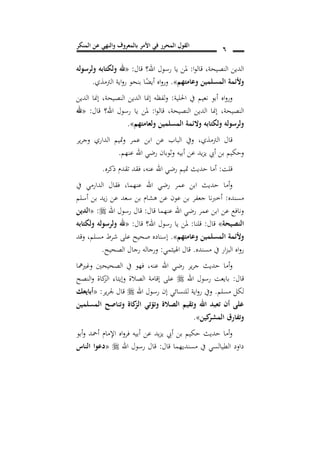 القول المحرر في الأمر بالمعروف والنهي عن المنكر
٦
الدين النصيحة، قالوا: لمن يا رسول الله؟ قال: «لله ولكتابه ولرسوله
ولأئمة المسلمين وعامتهم». ورواه أيضًا بنحو رواية الترمذي.
ورواه أبو نعيم في الحلية: ولفظه إنما الدين النصيحة، إنما الدين
النصيحة، إنما الدين النصيحة، قالوا: لمن يا رسول الله؟ قال: «لله
ولرسوله ولكتابه ولأئمة المسلمين ولعامتهم».
قال الترمذي، وفي الباب عن ابن عمر وتميم الداري وجرير
وحكيم بن أبي يزيد عن أبيه وثوبان رضي الله عنهم.
قلت: أما حديث تميم رضي الله عنه، فقد تقدم ذكره.
وأما حديث ابن عمر رضي الله عنهما، فقال الدارمي في
مسنده: أخبرنا جعفر بن عون عن هشام بن سعد عن زيد بن أسلم
ونافع عن ابن عمر رضي الله عنهما قال: قال رسول الله ﷺ: «الدين
النصيحة» قال: قلنا: لمن يا رسول الله؟ قال: «لله ولرسوله ولكتابه
ولأئمة المسلمين وعامتهم». إسناده صحيح على شرط مسلم، وقد
رواه البزار في مسنده. قال الهيثمي: ورجاله رجال الصحيح.
وأما حديث جرير رضي الله عنه، فهو في الصحيحين وغيرهما
قال: بايعت رسول الله ﷺ على إقامة الصلاة وإيتاء الزكاة والنصح
لكل مسلم. وفي رواية للنسائي إن رسول الله ﷺ قال لجرير: «أبايعك
على أن تعبد الله وتقيم الصلاة وتؤتي الزكاة وتناصح المسلمين
وتفارق المشركين».
وأما حديث حكيم بن أبي يزيد عن أبيه فرواه الإمام أحمد وأبو
داود الطيالسي في مسنديهما قال: قال رسول الله ﷺ «دعوا الناس